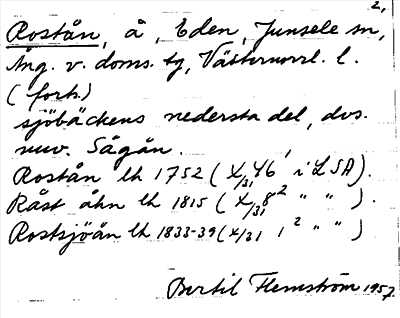 2,
Rostån, å, Eden, Junsele sn,
Ång. v. doms. tg, Västernorrl. l.
(forts.)
sjöbäckens nedersta del, dvs.
nuv. Sågån.
Rostån lh 1752 (X/31 46, i LSA).
Råst åhn lh 1815 (X/31 8² " " ).
Rostsjöån lh 1833-39 (X/31 1² " " )
Bertil Flemström 1957.